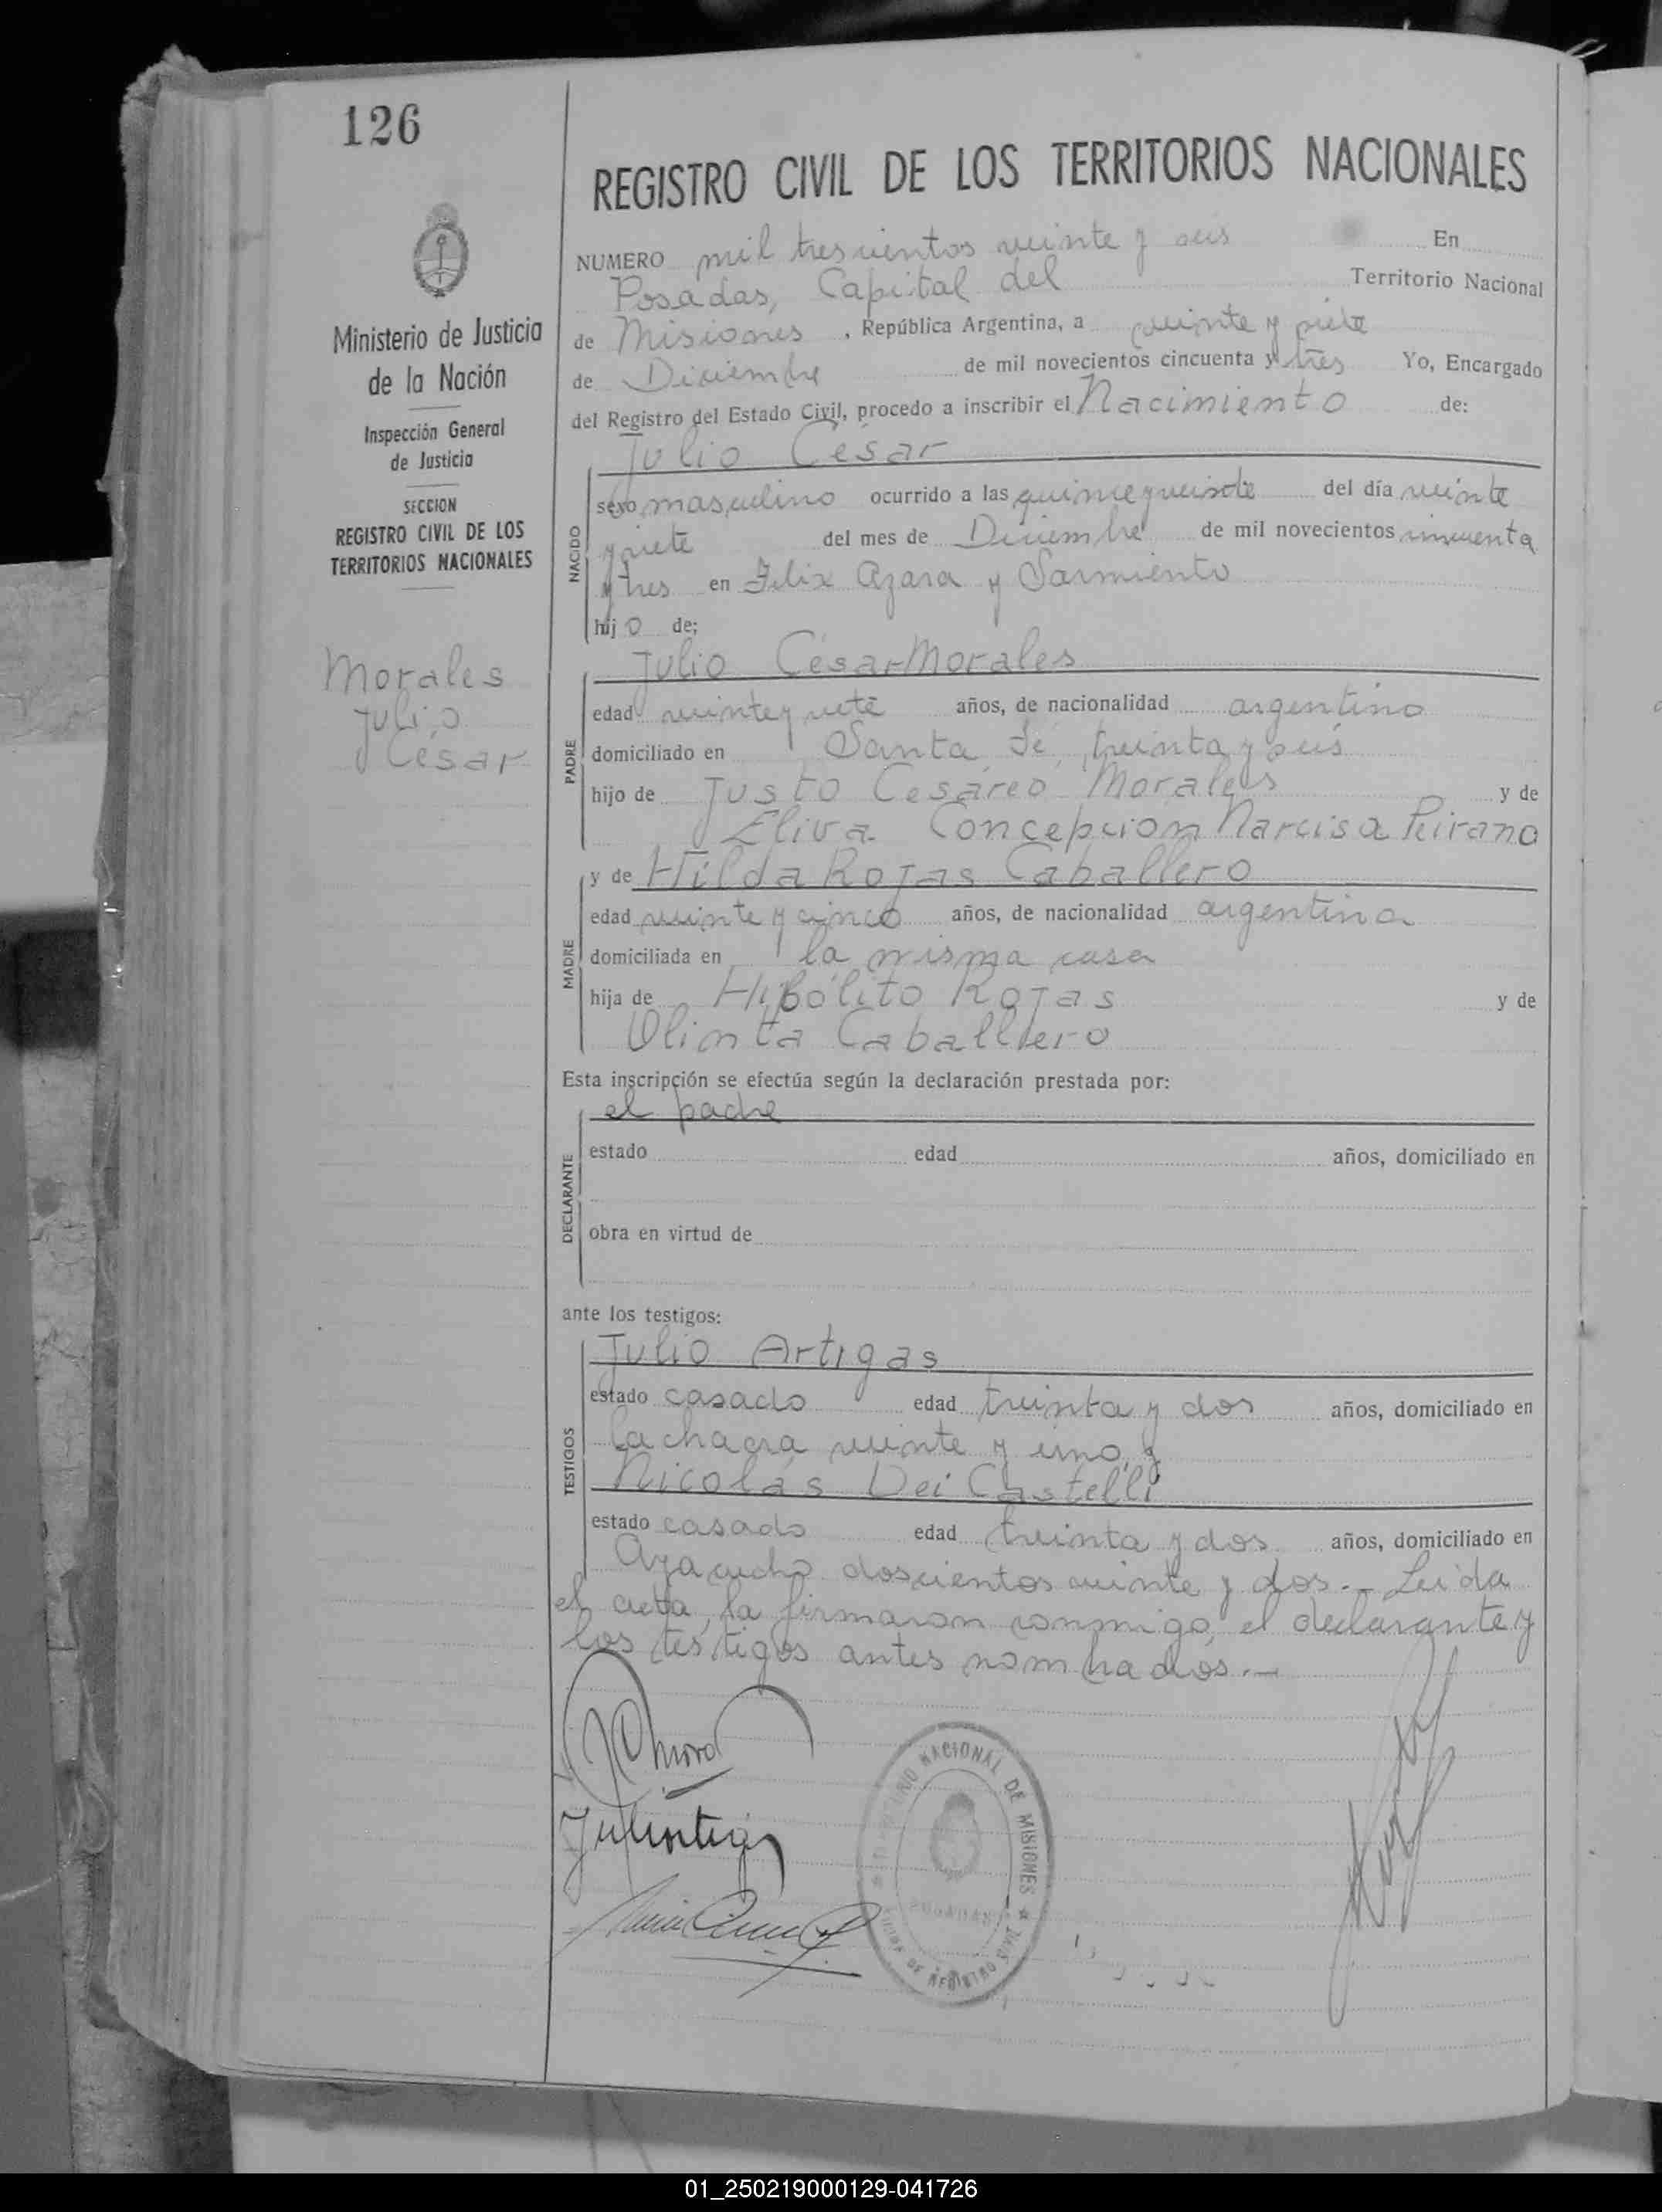 126
REGISTRO CIVIL DE LOS TERRITORIOS NACIONALES
NUMERO mil trescientos veinte y seis En
Posadas, Capital del Territorio Nacional
de Misiones, República Argentina, a veinte y siete
de Diciembre de mil novecientos cincuenta y tres Yo, Encargado
del Registro del Estado Civil, procedo a inscribir el Nacimiento de:
Julio César
NACIDO
sexo masculino ocurrido a las quince y veinte del día veinte
y siete del mes de Diciembre de mil novecientos cincuenta
y tres en Felix Azara y Sarmiento
hijo de:
Julio César Morales
PADRE
edad veinte y siete años, de nacionalidad argentino
domiciliado en Santa Fé, treinta y seis
hijo de Justo Cesáreo Morales y de
Eliva Concepcion Narcisa Peirano
y de Hilda Rojas Caballero
MADRE
edad veinte y cinco años, de nacionalidad argentina
domiciliada en la misma casa
hija de Hipólito Rojas y de
Olinta Caballero
Esta inscripción se efectúa según la declaración prestada por:
el padre
DECLARANTE
estado edad años, domiciliado en
obra en virtud de
ante los testigos:
Julio Artigas
TESTIGOS
estado casado edad treinta y dos años, domiciliado en
la chacra veinte y uno, y
Nicolás Dei Castelli
estado casado edad treinta y dos años, domiciliado en
Ayacucho doscientos veinte y dos.- Leida
el acta, la firmaron conmigo, el declarante y
los testigos antes nombrados.-
Ministerio de Justicia
de la Nación
Inspección General
de Justicia
SECCION
REGISTRO CIVIL DE LOS
TERRITORIOS NACIONALES
Morales
Julio
César
NACIONAL DE MISIONES
POSADAS
DE REGISTRO
01_250219000129-041726